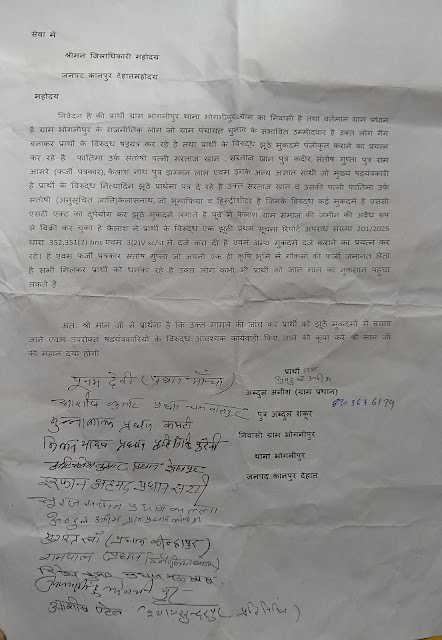 सेवा में
श्रीमन जिलाधिकारी महोदय
जनपद कानपुर देहातमहोदय
महोदय
निवेदन है की प्रार्थी ग्राम भोगनीपुर थाना भोगनीपुर ग्राम का निवासी है तथा वर्तमान ग्राम प्रधान
है ग्राम भोगनीपुर के राजनीतिक लोग जो ग्राम पंचायत चुनाव के सभावित उम्मीदवार है उक्त लोग गैंग
बनाकर प्रार्थी के विरुद्ध षड्यंत्र कर रहे है तथा प्रार्थी के विरुद्ध झूठे मुकदमे पंजीकृत कराने का प्रयत्न
कर रहे है फातिमा उर्फ संतोषी पत्नी सरताज खान , सरताज खान पुत्र कदीर, संतोष गुप्ता पुत्र राम
आसरे (फर्जी पत्रकार), कैलाश नाथ पुत्र झम्मन लाल एवम इनके अन्य अज्ञात साथी जो मुख्य षड्यंत्रकारी
है प्रार्थी के विरुद्ध नित्यादिन झूठे प्रार्थना पत्र दे रहे है उक्त सरताज खान व उसकी पत्नी फातिमा उर्फ
संतोषी (अनुसूचित जाति)कैलासनाथ, जो भूमाफिया व हिस्ट्रीशीटर है जिनके विरुद्ध कई मुकदमे है एससी
एसटी एक्ट का दुपेयोग कर झूठे मुकदमे लगाते है पूर्व में कैलाश ग्राम समाज की जमीन की अवैध रूप
से बिक्री कर चुका है कैलाश ने प्रार्थी के विरुद्ध एक झूठी प्रथम सूचना रिपोर्ट अपराध संख्या 201/2025
धारा 352,351(2) bns एवम 3(2)V sc/st में दर्ज करा दी है एवम अन्य मुकदमे दर्ज कराने का प्रयत्न कर
रहे) है एवम फर्जी पत्रकार संतोष गुप्ता जो अपनी एक ही कृषि भूमि में सैकड़ों की फर्जी जमानत लेता
है सभी मिलकर प्रार्थी को धमका रहे है उक्त लोग कभी भी प्रार्थी को जान माल का नुकसान पहुंचा
सकते है
अतः श्री मान जी से प्रार्थना है कि उक्त मामले की जांच कर प्रार्थी को झूठे मुकदमों से बचाए
जाने एवम उपरोक्त षड्यंत्रकारियों के विरुद्ध आवश्यक कार्यवाही किए जाने की कृपा करे श्री मान जी
की महान दया होगी
प्रार्थी
पूनम देवी (प्रधान)
अब्दुल अनीश (ग्राम प्रधान)
पुत्र अब्दुल शकूर
निवासी ग्राम भोगनीपुर
थाना भोगनीपुर
जनपद कानपुर देहात
मुन्नालाल प्रधान
इरफान अहमद प्रधान
रामपाल (प्रधान
आशीष पटेल